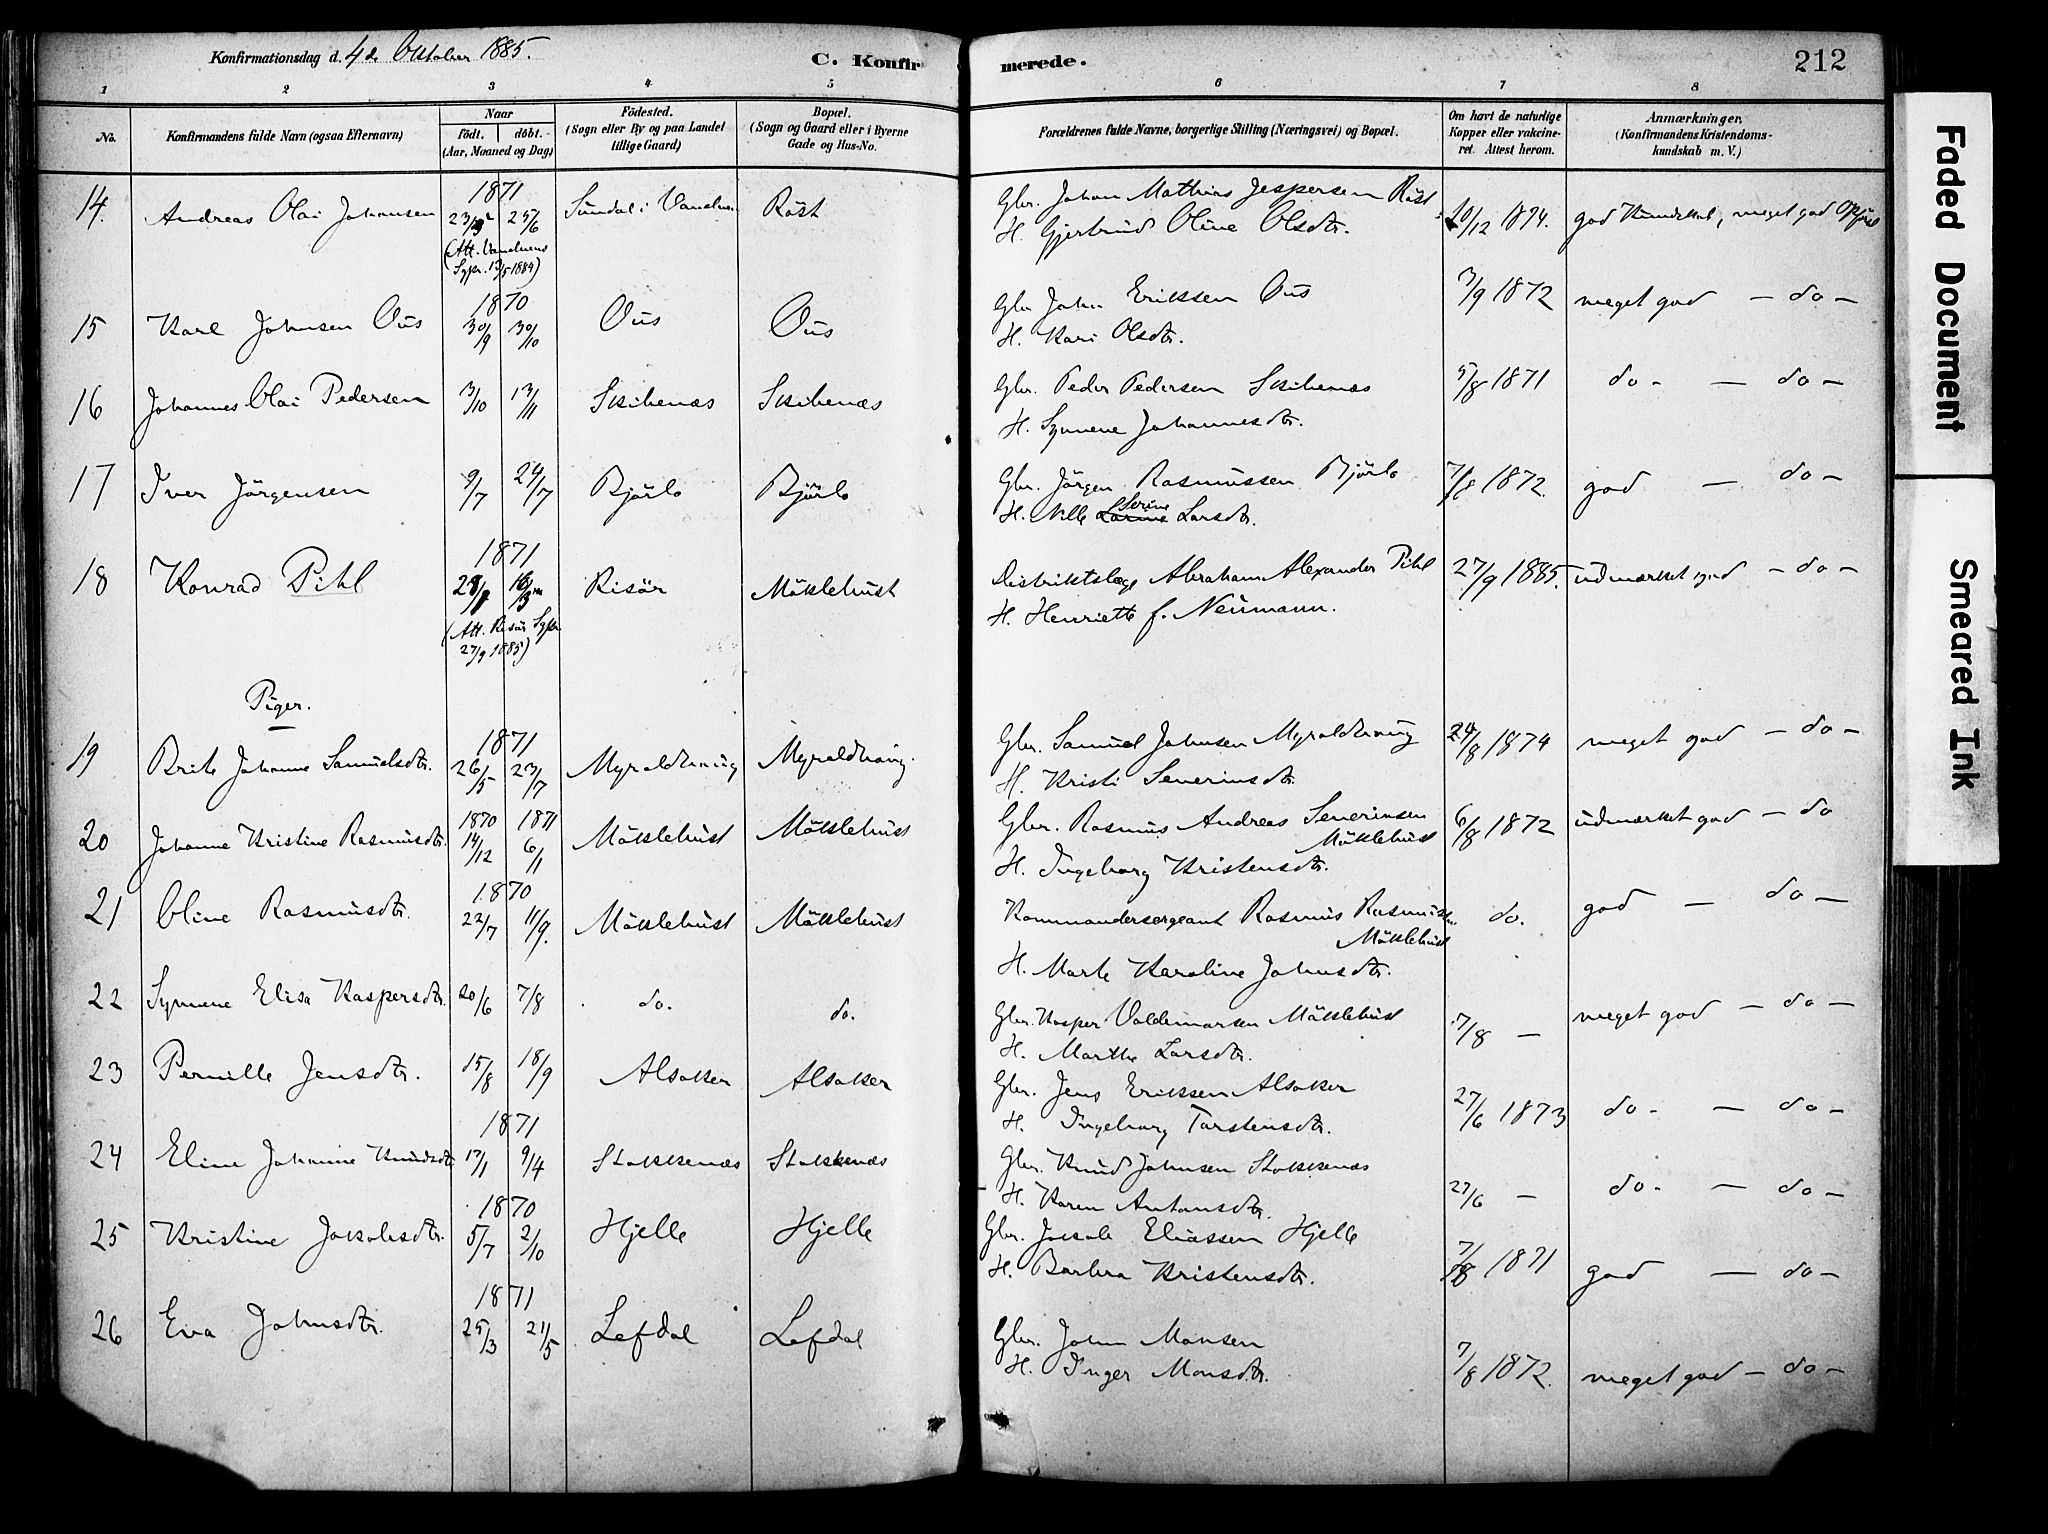 Konfirmationsdag d. 4de Oktober 1885.
C. Konfirmerede.
212
1 2 3 4 5 6 7 8
No.
Konfirmandens fulde Navn (ogsaa Efternavn)
Naar
födt. döbt.
(Aar, Maaned og Dag)
Födested.
(Sogn eller By og paa Landet
tillige Gaard)
Bopæl.
(Sogn og Gaard eller i Byerne
Gade og Hus-No.
Forældrenes fulde Navne, borgerlige Stilling (Næringsvei) og Bopæl.
Om havt de naturlige
Kopper eller vakcine-
ret. Attest herom.
Anmærkninger,
(Konfirmandens Kristendoms-
kundskab m. V.)
1871
14. Andreas Olai Johansen 25/6 Sundal i Röst Gbr. Johan Mathias Jespersen Röst 20/12 1874. god Kundskab, meget god
H. Gjertrud Oline Olsdtr.
(Att. Vanelvens
Sgpr. 13/5 1884)
1870
15 Karl Johnsen Ous 30/9 30/10 Ous Ous Gbr John Eriksen Ous 3/9 1872 meget god — do —
H. Kari Olsdtr.
16 Johannes Olai Pedersen 3/10 13/11 Skibenæs Skibenæs Gbr. Peder Pedersen Skibenæs 5/8 1871 do - — do —
H. Synneve Johannesdtr.
17 Iver Jörgensen 9/7 24/7 Björlo Björlo Gbr. Jörgen Rasmussen Björlo 7/8 1872. god — do —
H. Nille Larine Serine Larsdtr.
1871
18 Konrad Pihl Risör Möklebust Distriktslæge Abraham Alexander Pihl 27/9 1885. udmærket god — do —
H. Henriette f. Neumann.
(Att. Risör Sgpr
27/9 1885)
Piger.
1871
19 Brite Johanne Samuelsdtr. 26/5 23/7 Myroldhaug Myroldhaug. Gbr. Samuel Johnsen Myroldhaug 24/8 1874 meget god — do —
H. Kristi Severinsdtr.
1870 1871
20 Johanne Kristine Rasmusdtr. 14/12 6/1 Möklebust Möklebust Gbr. Rasmus Andreas Severinsen 6/8 1872 udmærket god — do
Möklebust
H. Ingeborg Kristensdtr.
1870
21 Oline Rasmusdtr. 22/7 11/9. Möklebust Möklebust Kommandersergeant Rasmus Rasmussen do. god — do —
Möklebust
H. Marte Karoline Johnsdtr.
22 Synneve Elisa Kaspersdtr. 20/6 7/8 do. do. Gbr. Kasper Valdemarsen Möklebust 7/8 — meget god — do —
H. Marthe Larsdtr.
23 Pernille Jensdtr. 15/8 18/9 Alsaker Alsaker Gbr. Jens Eriksen Alsaker 27/6 1873 do - — do —
H. Ingeborg Torstensdtr.
1871
24 Eline Johanne Knudsdtr 17/1 9/4 Stokkenæs Stokkenæs Gbr. Knud Johnsen Stokkenæs 27/6 — do - — do —
H. Karen Antonsdtr.
1870
25 Kristine Jakobsdtr. 5/7 2/10 Hjelle Hjelle Gbr. Jakob Eliassen Hjelle 7/8 1871 god — do —
H. Barbra Kristensdtr.
1871
26 Eva Johnsdtr. 25/3 21/5 Lefdal Lefdal Gbr. John Monsen 7/8 1872. meget god — do —
H. Inger Monsdtr.
Faded Document
Smeared Ink